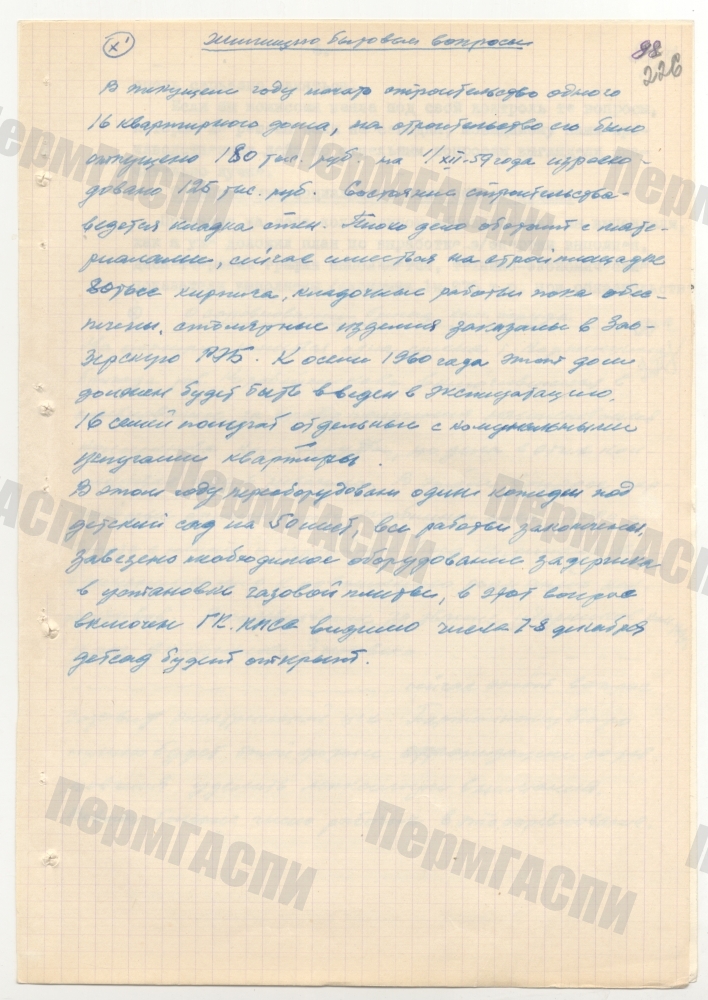 х'
98
226
Жилищно бытовые вопросы
В текущем году начато строительство одного
16 квартирного дома, на строительство его было
отпущено 180 тыс. руб. на 1/XII-59 года израсхо-
довано 125 тыс. руб. Состояние строительства-
ведется кладка стен. Плохо дело обстоит с мате-
риалами, сейчас имеется на стройплощадке
кирпича, кладочные работы пока обес-
печены, столярные изделия заказаны в Зао-
зерскую РЭБ. К осени 1960 года этот дом
должен будет быть введен в эксплуатацию,
16 семей получат отдельные с комунальными
услугами квартиры.
В этом году переоборудован один под
детский сад на 50 мест, все работы закончены,
завезено необходимое оборудование задержка
в установке газовой плиты, в этот вопрос
включен ГК. КПСС видимо числа 7-8 декабря
детсад будет открыт.
ПермГАСПИ
ПермГАСПИ
ПермГАСПИ
ПермГАСПИ
ПермГАСПИ
ПермГАСПИ
ПермГАСПИ
ПермГАСПИ